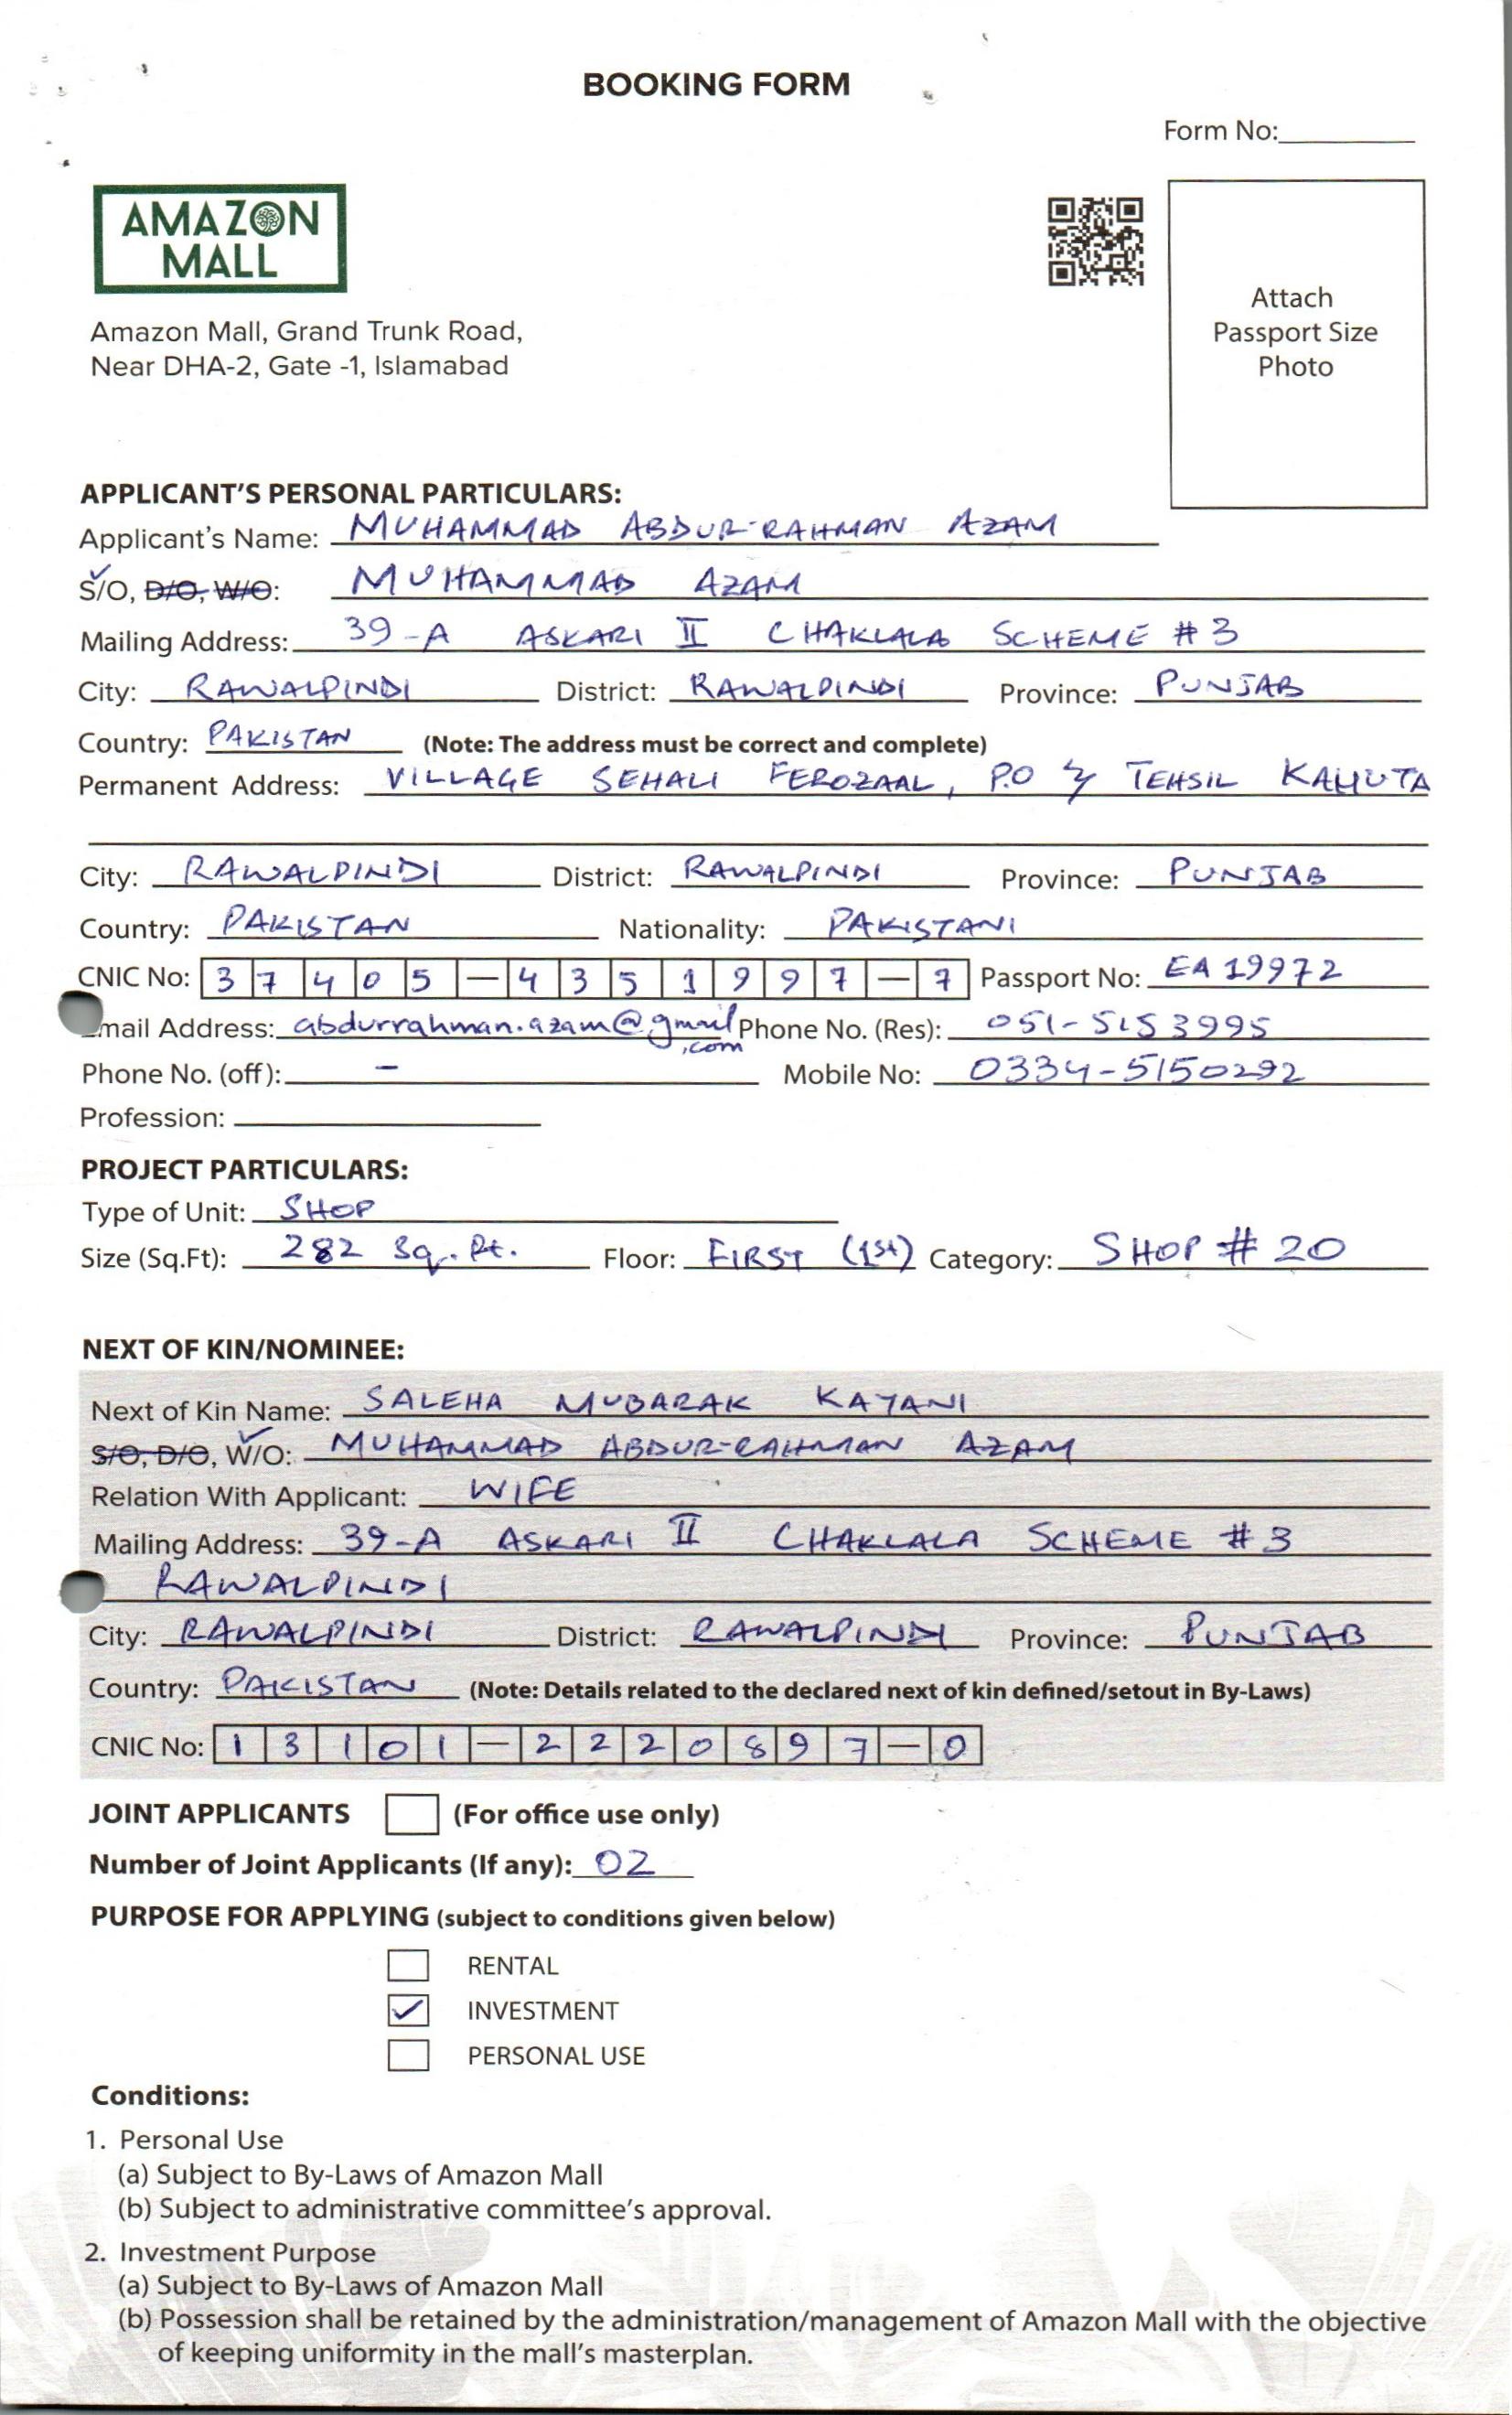 BOOKING FORM
Form No:
AMAZON
MALL
Amazon Mall, Grand Trunk Road,
Near DHA-2, Gate -1, Islamabad
Attach
Passport Size
Photo
APPLICANT'S PERSONAL PARTICULARS:
Applicant's Name: MUHAMMAD ABDUR-RAHMAN AZAM
S/O, D/O, W/O: MUHAMMAD AZAM
Mailing Address: 39-A ASKARI II CHAKLALA SCHEME #3
City: RAWALPINDI District: RAWALPINDI Province: PUNJAB
Country: PAKISTAN (Note: The address must be correct and complete)
Permanent Address: VILLAGE SEHALI FEROZAAL, P.O & TEHSIL KAHUTA
City: RAWALPINDI District: RAWALPINDI Province: PUNJAB
Country: PAKISTAN Nationality: PAKISTANI
CNIC No: 37405-4351997-7 Passport No: EA19972
Email Address: abdurrahman.azam@gmail Phone No. (Res): 051-5153995
.com
Phone No. (off): - Mobile No: 0334-5150292
Profession:
PROJECT PARTICULARS:
Type of Unit: SHOP
Size (Sq.Ft): 282 Sq. Ft. Floor: FIRST (1st) Category: SHOP # 20
NEXT OF KIN/NOMINEE:
Next of Kin Name: SALEHA MUBARAK KAYANI
S/O, D/O, W/O: MUHAMMAD ABDUR-RAHMAN AZAM
Relation With Applicant: WIFE
Mailing Address: 39-A ASKARI II CHAKLALA SCHEME #3
RAWALPINDI
City: RAWALPINDI District: RAWALPINDI Province: PUNJAB
Country: PAKISTAN (Note: Details related to the declared next of kin defined/setout in By-Laws)
CNIC No: 13101-2220897-0
JOINT APPLICANTS (For office use only)
Number of Joint Applicants (If any): 02
PURPOSE FOR APPLYING (subject to conditions given below)
RENTAL
INVESTMENT
PERSONAL USE
Conditions:
1. Personal Use
(a) Subject to By-Laws of Amazon Mall
(b) Subject to administrative committee's approval.
2. Investment Purpose
(a) Subject to By-Laws of Amazon Mall
(b) Possession shall be retained by the administration/management of Amazon Mall with the objective
of keeping uniformity in the mall's masterplan.